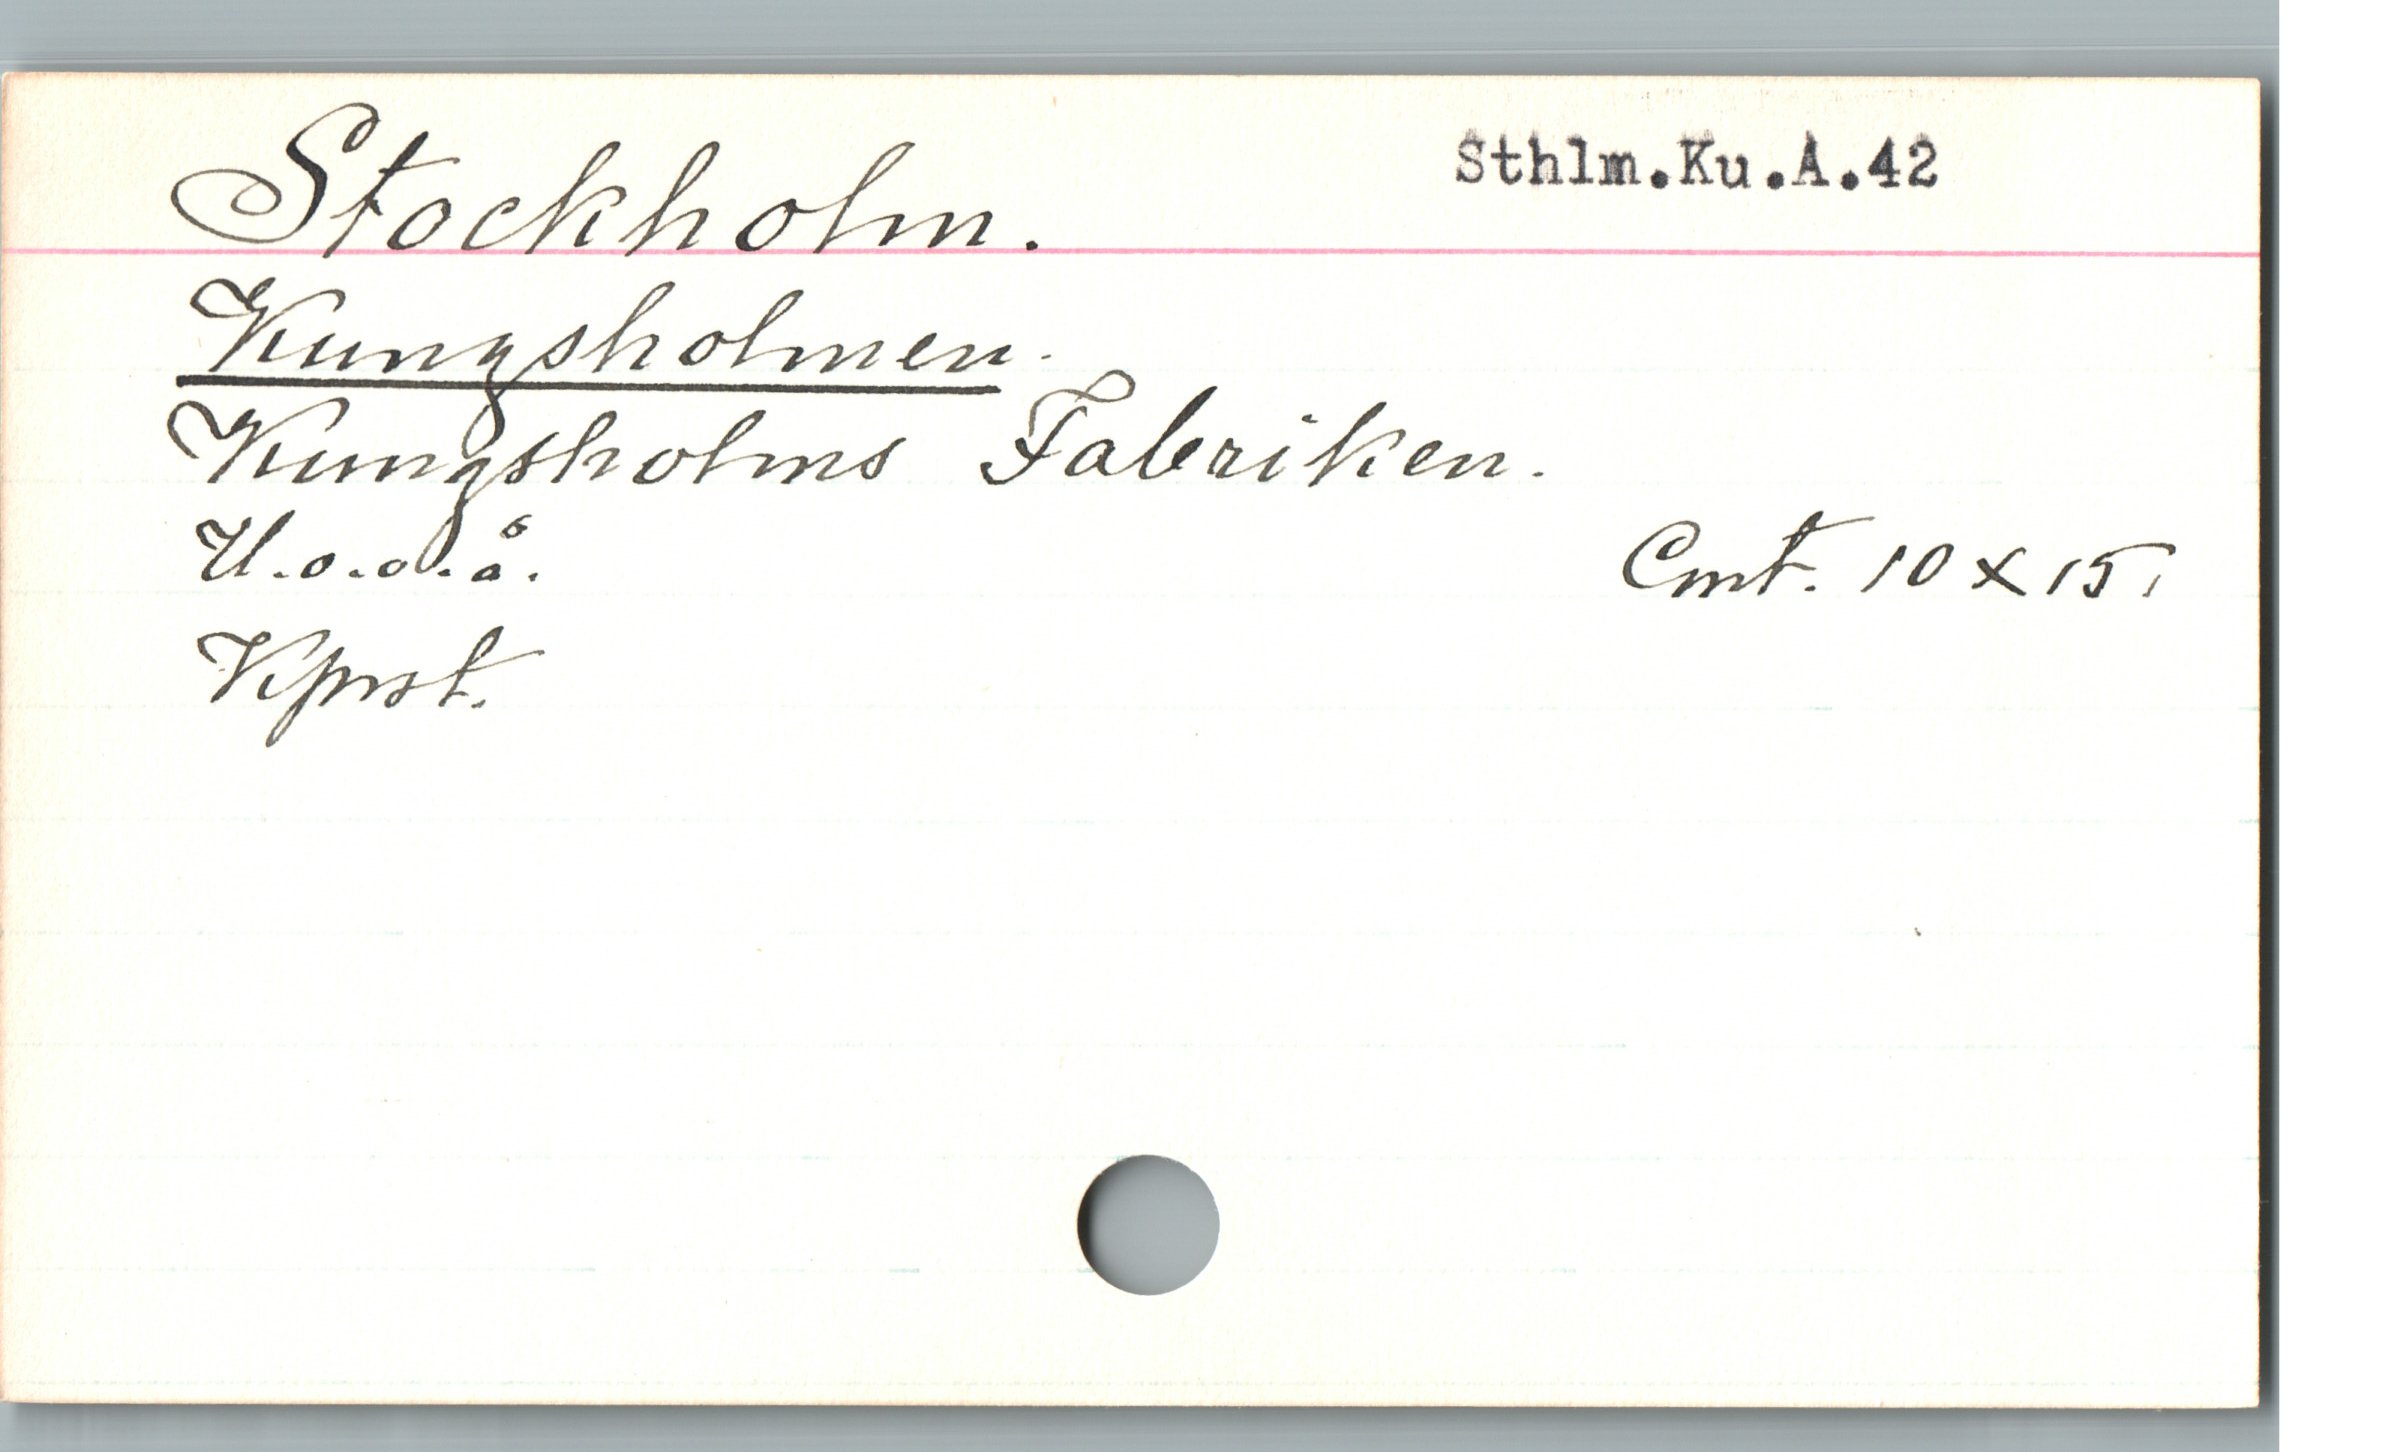 Stockholm. Sthlm.Ku.A.42
Kungsholmen.
Kungsholms Fabriken.
U.o.o.å. Cmt. 10 x 15.
Kprst.